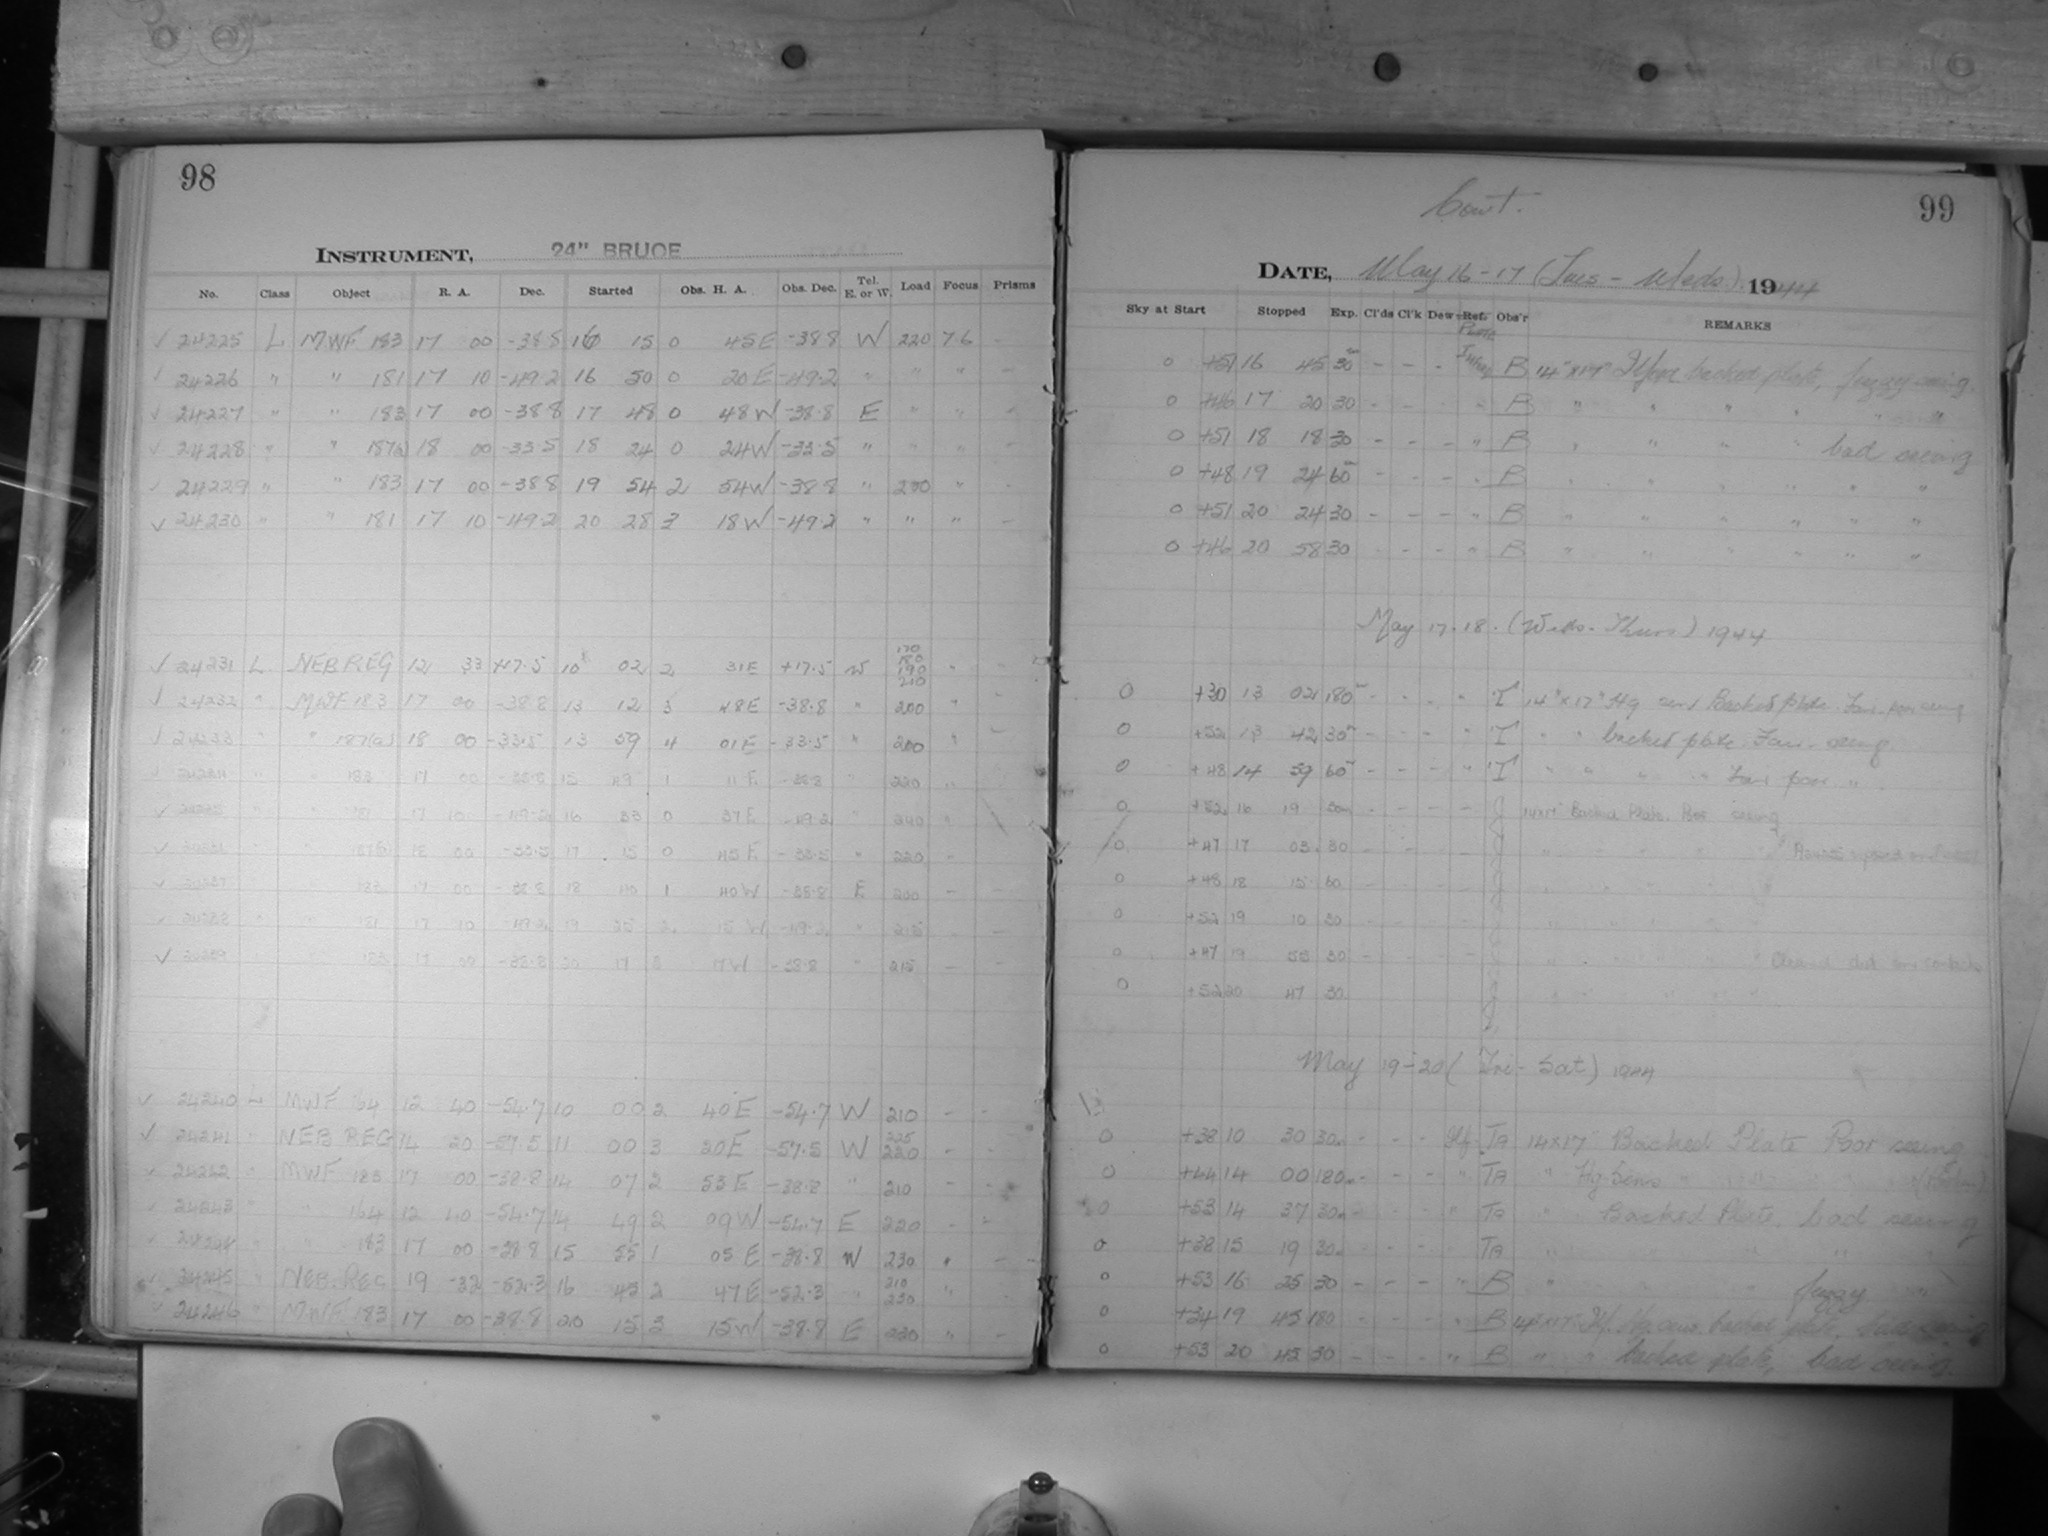 98
INSTRUMENT, 24" BRUCE
No. Class Object R. A. Dec. Started Obs. H. A. Obs. Dec. Tel. E. or W. Load Focus Prisms
✓ 24225 L MWF 183 17 00 -38.8 16 15 0 45E -38.8 W 220 7.6 -
✓ 24226 " " 181 17 10 -49.2 16 50 0 20E -49.2 " " " -
✓ 24227 " " 183 17 00 -38.8 17 48 0 48W -38.8 E " " -
✓ 24228 " " 187(a) 18 00 -33.5 18 24 0 24W -33.5 " " " -
✓ 24229 " " 183 17 00 -38.8 19 54 2 54W -38.8 " 230 " -
✓ 24230 " " 181 17 10 -49.2 20 28 3 18W -49.2 " " " -
✓ 24231 L NEB REG 12 33 +17.5 10 02 2 31E +17.5 W 190 210 "
✓ 24232 " MWF 183 17 00 -38.8 13 12 3 48E -38.8 " 200 "
✓ 24233 " " 187(a) 18 00 -33.5 13 59 4 01E -33.5 " 200 "
✓ 24234 " " 183 17 00 -38.8 15 49 1 11E -38.8 " 220 "
✓ 24235 " " 181 17 10 -49.2 16 33 0 37E -49.2 " 240 "
✓ " " 18 00 -33.5 17 15 0 45E -33.5 " 220 -
✓ 24237 " " 183 17 00 -38.8 18 40 1 40W -38.8 E 200 - -
✓ 24238 " " 181 17 10 -49.2 19 25 2 15W -49.2 " 215 - -
✓ 24239 " " 183 17 00 -38.8 20 17 3 17W -38.8 " 215 - -
✓ 24240 L MWF 164 12 40 -54.7 10 00 2 40E -54.7 W 210 - -
✓ 24241 " NEB REG 14 20 -57.5 11 00 3 20E -57.5 W 225 220 - -
✓ 24242 " MWF 183 17 00 -38.8 14 07 2 53E -38.8 " 210 - -
✓ 24243 " " 164 12 40 -54.7 14 49 2 09W -54.7 E 220 - -
✓ 24244 " " 183 17 00 -38.8 15 55 1 05E -38.8 W 230 " -
✓ 24245 " NEB. REG 19 32 -52.3 16 45 2 47E -52.3 " 210 230 " -
✓ 24246 " MWF 183 17 00 -38.8 20 15 3 15W -38.8 E 220 " -
99
Cont.
DATE, May 16-17 (Tues - Weds.) 1944
Sky at Start Stopped Exp. Cl'ds Cl'k Dew Ref. Plate Obs'r REMARKS
0 +51 16 45 30m - - - B 14"x17" Ilford backed plate, fuzzy seeing
0 +46 17 20 30 - - - " B " " " " " "
0 +51 18 18 30 - - - " B " " " " bad seeing
0 +48 19 24 60m - - - " B " " " " " "
0 +51 20 24 30 - - - " B " " " " " "
0 +46 20 58 30 - - - " B " " " " " "
May 17-18. (Weds. - Thurs) 1944
0 +30 13 02 180m - - - " T 14"x17" Hg sens Backed plate. Fair poor seeing
0 +52 13 42 30m - - - " T " " backed plate. Fair seeing.
0 +48 14 59 60m - - - " T " " " " Fair poor "
0 +52 16 19 30m - - - - J 14x17" Backed Plate. Poor seeing
0 +47 17 03 30 - - - - J " " " " "
0 +48 18 15 60 - - - - J " " " "
0 +52 19 10 30 - - - - J " " " "
0 +47 19 55 30 - - - - J " " " " "
0 +52 20 47 30 J " " " " "
May 19-20 (Fri - Sat) 1944
0 +38 10 30 30m - - - Ilf. TA 14x17" Backed Plate Poor seeing
0 +44 14 00 180m - - - " TA " Hg Sens " " " "
0 +53 14 37 30m - - - " TA " Backed Plate, bad seeing
0 +38 15 19 30m - - - TA " " " " "
0 +53 16 25 30 - - - " B " " " fuzzy "
0 +34 19 45 180 - - - " B 14"x17" Ilf. Hg sens. backed plate,
0 +53 20 45 30 - - - " B " " backed plate, bad seeing.